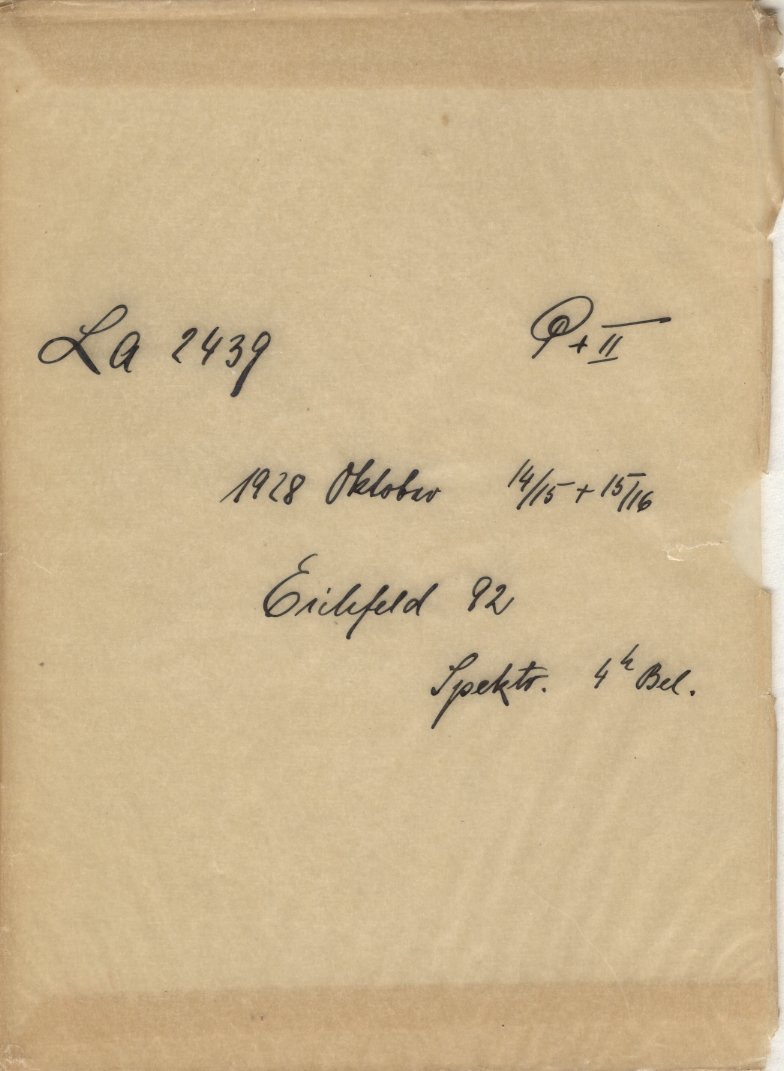 La 2439 P + II
1928 Oktober 14/15 + 15/16
Eichfeld 92
Spektr. 4h Bel.